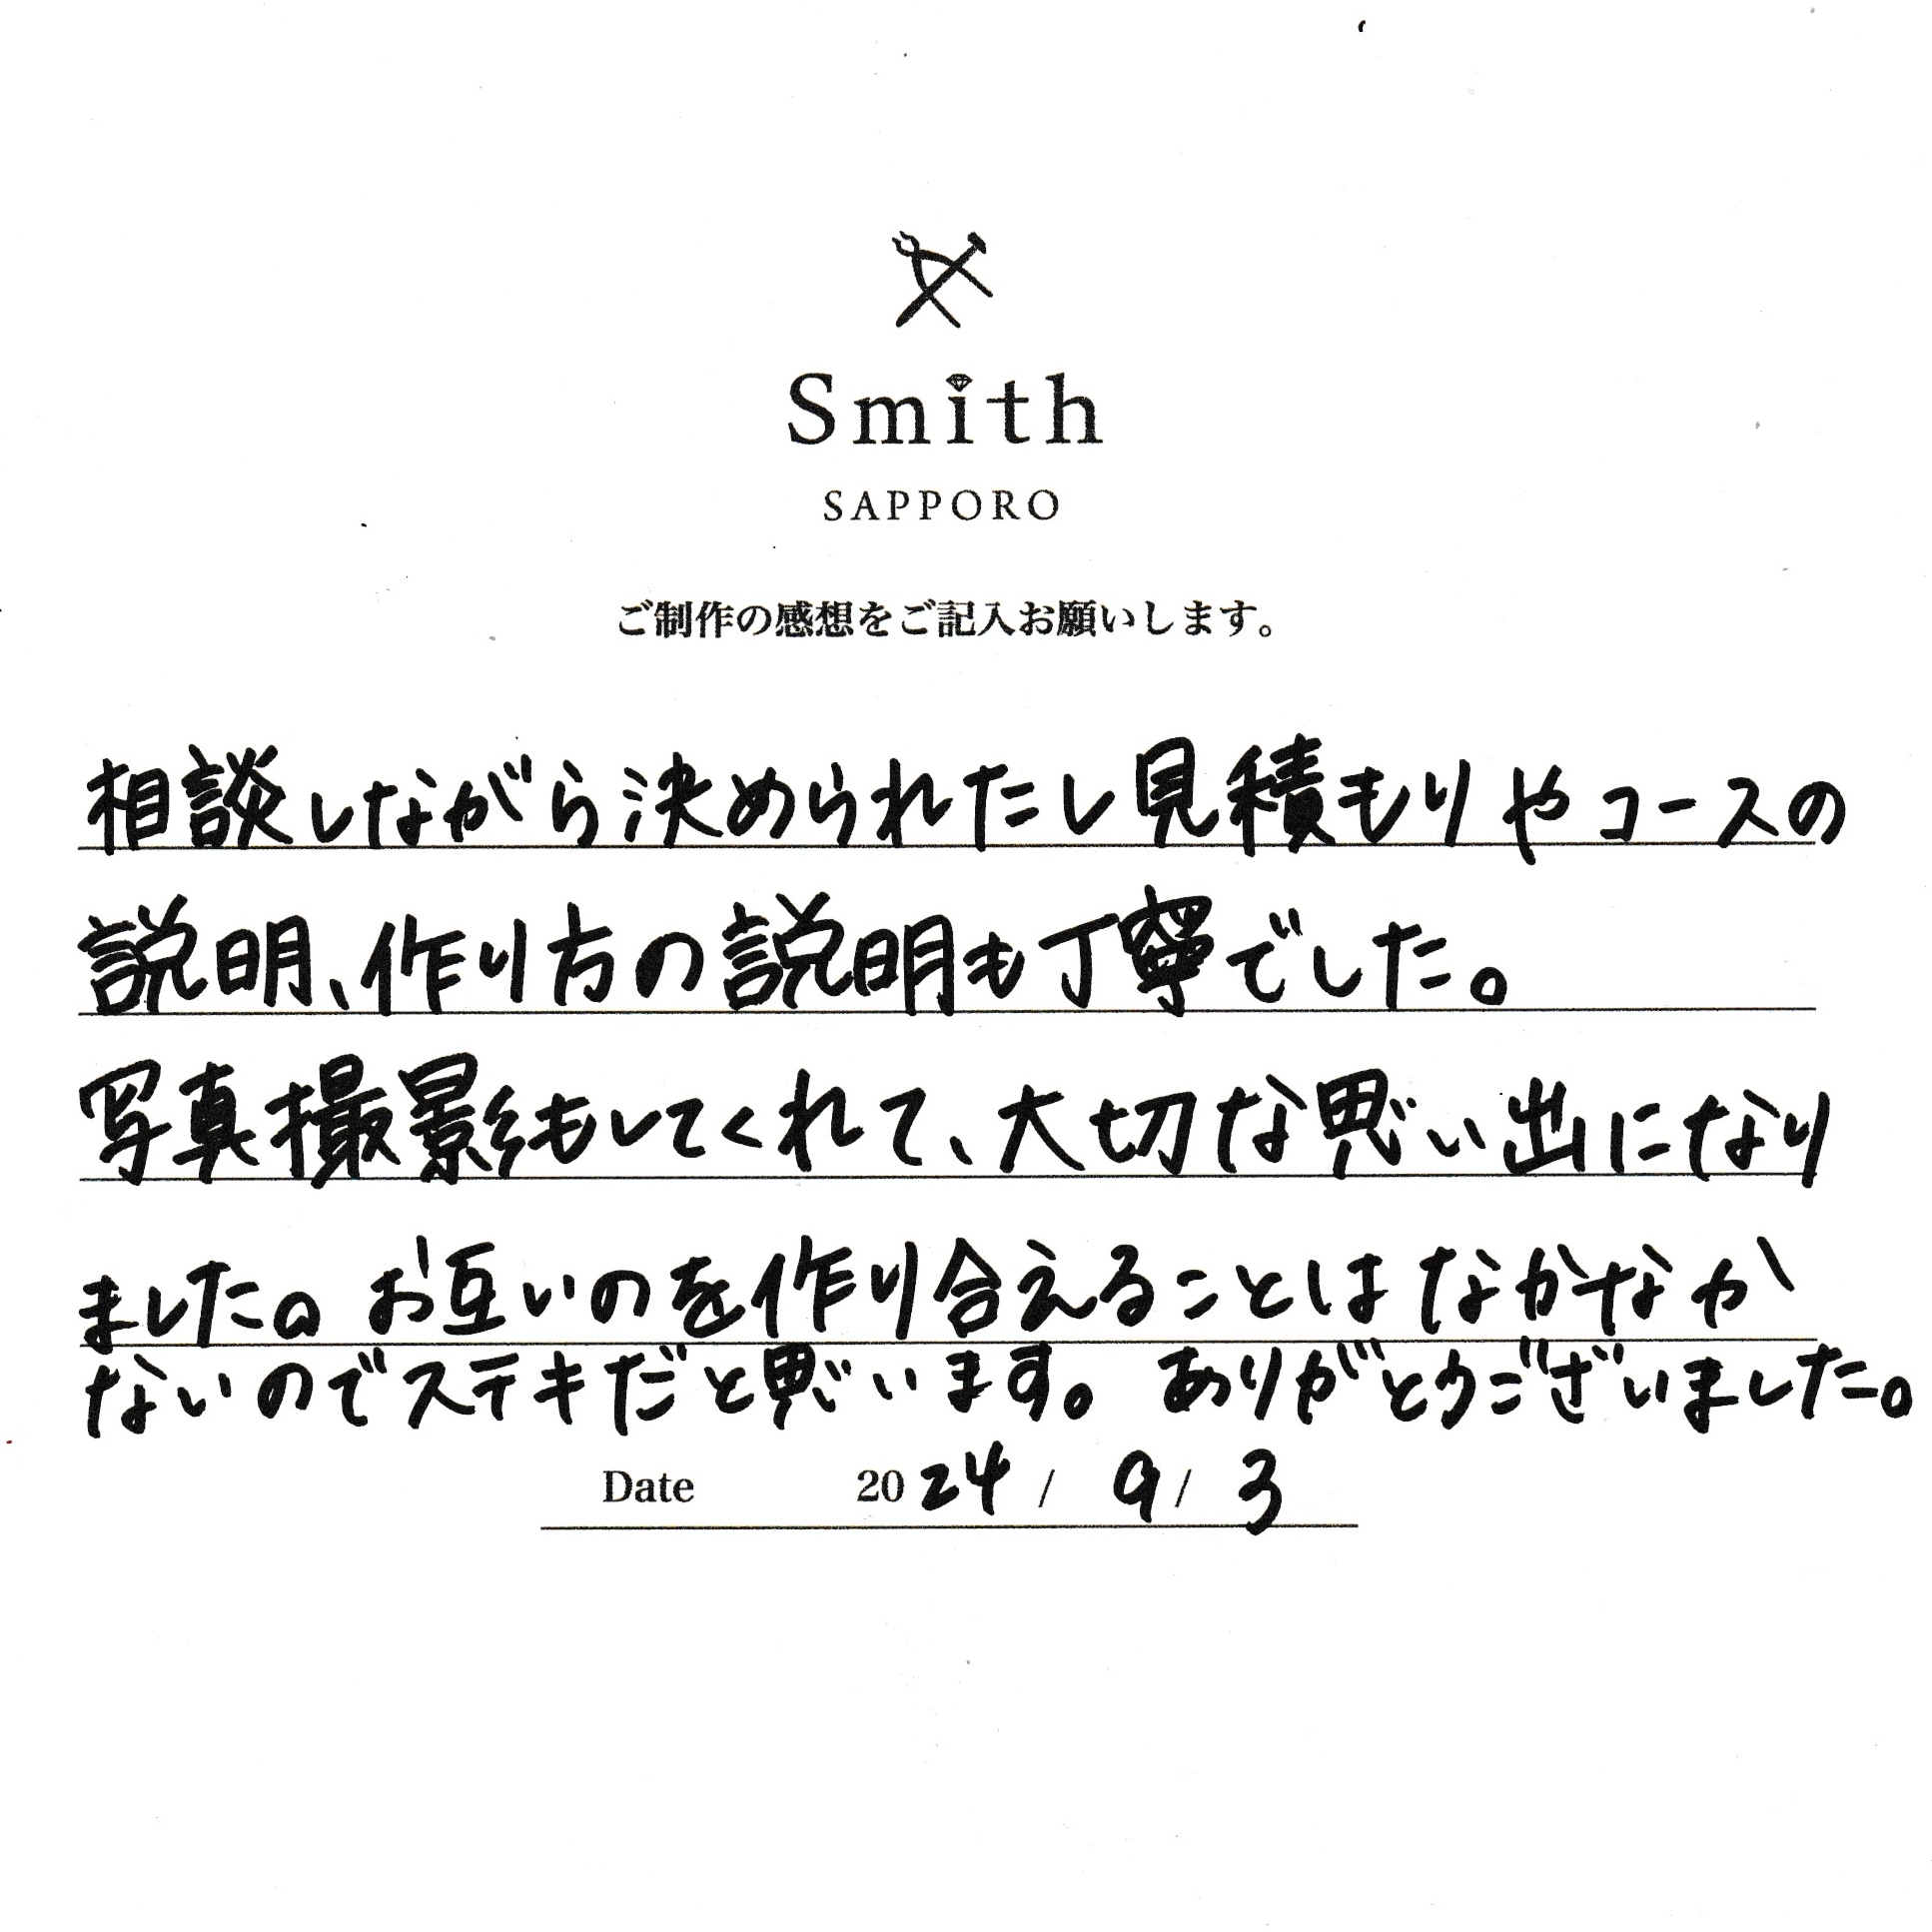 Smith
SAPPORO
ご制作の感想をご記入お願いします。
相談しながら決められたし見積もりやコースの
説明、作り方の説明も丁寧でした。
写真撮影もしてくれて、大切な思い出になり
ました。お互いのを作り合えることはなかなか
ないのでステキだと思います。ありがとうございました。
Date 2024 / 9 / 3